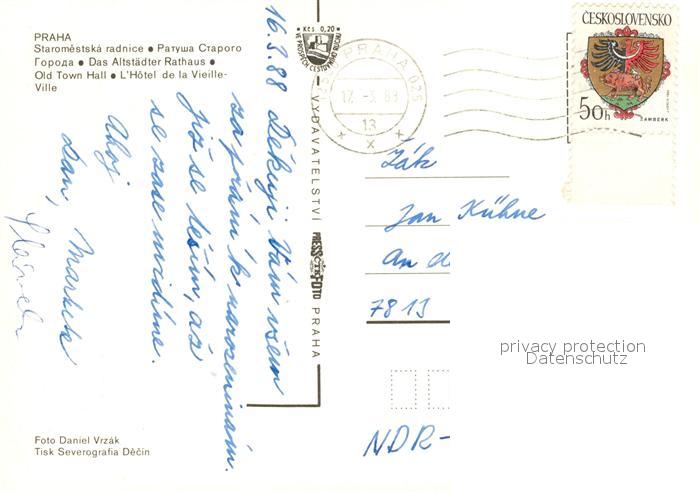 PRAHA
Staroměstská radnice ● Ратуша Старого
Города ● Das Altstädter Rathaus ●
Old Town Hall ● L'Hôtel de la Vieille-
Ville
16.3.88 Děkuji Vám všem
za přání k narozeninám.
Již se těším, až
se zase uvidíme.
Ahoj
Dan, Markéta
Foto Daniel Vrzák
Tisk Severografia Děčín
Kčs 0,20
VE PROSPĚCH CESTOVNÍHO RUCHU
VYDAVATELSTVÍ PRESSFOTO PRAHA
PRAHA 025
13
ČESKOSLOVENSKO
50h
ŽAMBERK
Žák
Jan Kühne
An d
7813
NDR-
privacy protection
Datenschutz